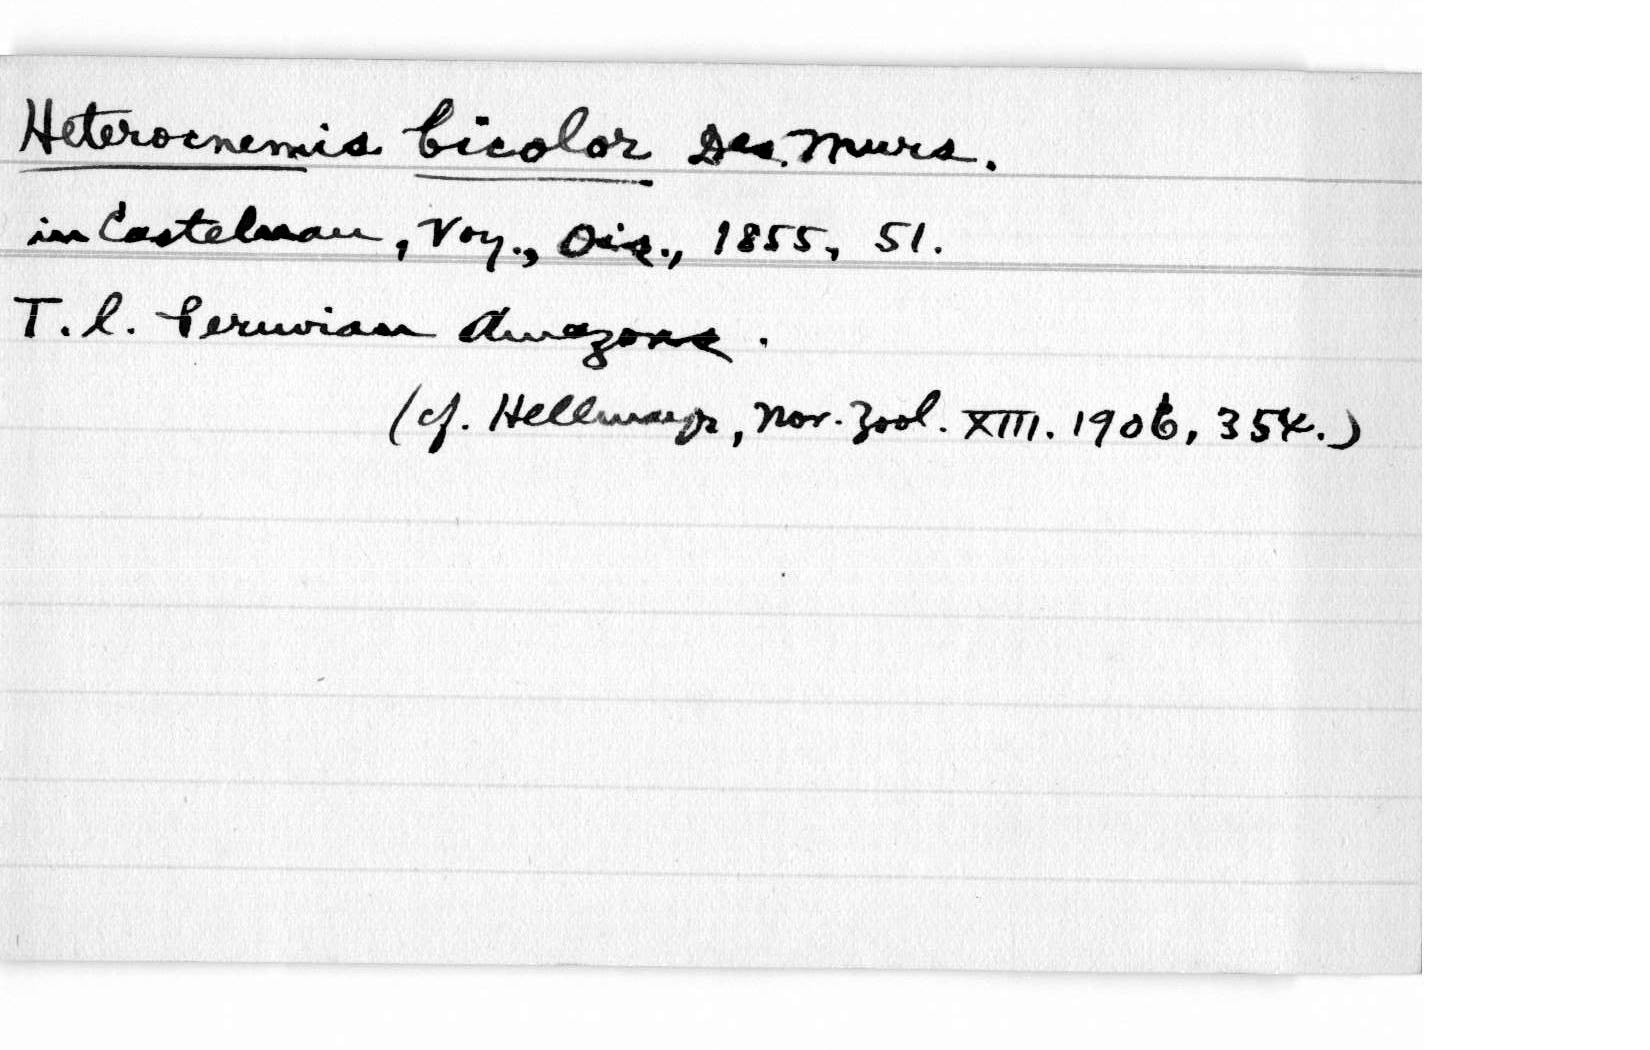 Heterocnemis bicolor Des Murs.
in Castelnau, Voy., Ois., 1855, 51.
T. l. Peruvian Amazons.
(cf. Hellmayr, Nov. Zool. XIII. 1906, 354.)